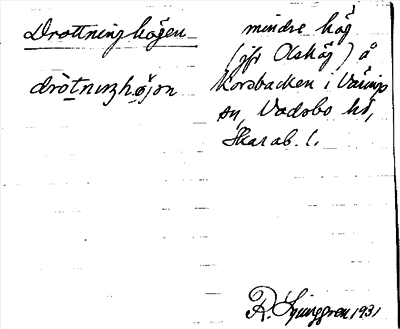 Drottninghögen
dròtnιŋhö̀jǝn
mindre hög
(jfr Olshög) å
Korsbacken i Värings
sn, Vadsbo hd,
Skarab. l.
R. Ljunggren 1931